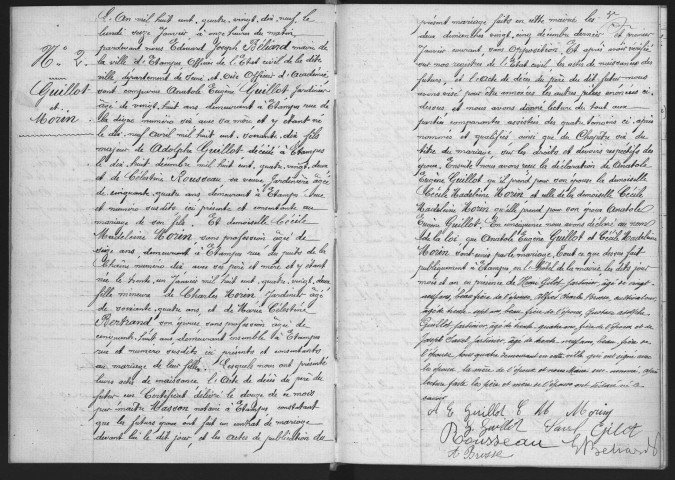 N° 2.
Guillot
et
Morin
L'An mil huit cent quatre vingt dix neuf le
lundi seize Janvier, à onze heures du matin
pardevant nous Edouard Joseph Béliard maire de
la ville d'Etampes Officier de l'Etat civil de la dite
ville, département de Seine et Oise Officier d'Académie,
sont comparus Anatole Eugène Guillot Jardinier
âgé de vingt huit ans demeurant à Etampes rue de
la digue numéro six avec sa mère et y étant né
le dix neuf avril mil huit cent soixante dix fils
majeur de Adolphe Guillot décédé à Etampes
le dix huit décembre mil huit cent quatre vingt deux
et de Célestine Rousseau sa veuve Jardinière âgée
de cinquante quatre ans, demeurant à Etampes rue
et numéro susdits ici présente et consentante au
mariage de son fils. Et demoiselle Cécile
Madeleine Morin sans profession âgée de
seize ans, demeurant à Etampes rue du puits de la
Chaîne numéro dix avec ses père et mère et y étant
née le trente un Janvier mil huit cent quatre vingt deux
fille mineure de Charles Morin Jardinier âgé
de soixante quatre ans, et de Marie Célestine
Bertrand son épouse sans profession âgée de
cinquante huit ans demeurant ensemble à Etampes
rue et numéro susdits ici présents et consentants
au mariage de leur fille. Lesquels nous ont présenté
leurs actes de naissance l'Acte de décès du père du
futur un Certificat délivré le douze de ce mois
par maître Hasson notaire à Etampes constatant
que les futurs époux ont fait un contrat de mariage
devant lui le dit jour, et les actes de publication du
présent mariage faits en cette mairie les
deux dimanches vingt cinq décembre dernier et premier
Janvier courant, sans opposition. Et après avoir vérifié
sur nos registres de l'Etat civil les actes de naissances des
futurs, et l'acte de décès du père du dit futur nous
avons visé pour être annexées les autres pièces énoncées ci
dessus et nous avons donné lecture du tout aux
parties comparantes assistées des quatre témoins ci après
nommés et qualifiés ainsi que du Chapitre six du
titre du mariage sur les droits et devoirs respectifs des
époux. Ensuite nous avons reçu la déclaration de Anatole
Eugène Guillot qu'il prend pour son épouse la demoiselle
Cécile Madeleine Morin et celle de la demoiselle Cécile
Madeleine Morin qu'elle prend pour son époux Anatole
Eugène Guillot. En conséquence nous avons déclaré au nom
de la loi que Anatole Eugène Guillot et Cécile Madeleine
Morin sont unis par le mariage. Tout ce que dessus fait
publiquement à Etampes en l'Hôtel de la mairie les dits jour
mois et an en présence de Henri Gilot, jardinier, âgé de vingt
neuf ans, beau frère de l'épouse, Alfred Brosse,
âgé de trente sept ans, beau frère de l'épouse, Gustave Adolphe
Guillot, jardinier, âgé de trente quatre ans, frère de l'époux et de
Joseph Saint, jardinier, âgé de trente ans, beau frère de
l'époux, tous quatre demeurant en cette ville qui ont signé avec
les époux, la mère de l'époux et nous Maire susnommé, après
lecture faite, les père et mère de l'épouse ont déclaré ne le
savoir
A E Guillot C M Morin
G Guillot Saint Gilot
Rousseau
A Brosse E Béliard